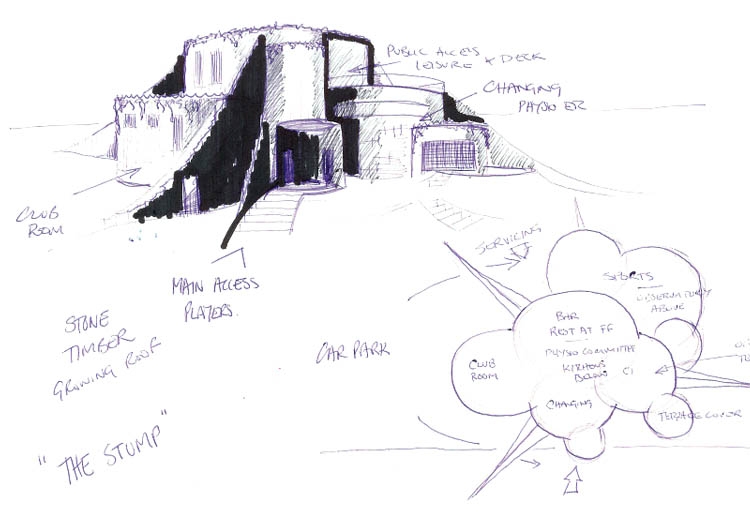 PUBLIC ACCESS
LEISURE & DECK
CHANGING
CLUB
ROOM
MAIN ACCESS
PLAYERS.
STONE
TIMBER
GROWING ROOF
"THE STUMP"
CAR PARK
SERVICING
SPORTS
OBSERVATORY
ABOVE
BAR
REST AT FF
PHYSIO COMMITTEE
BELOW
CLUB
ROOM
CHANGING
TERRACE COVER